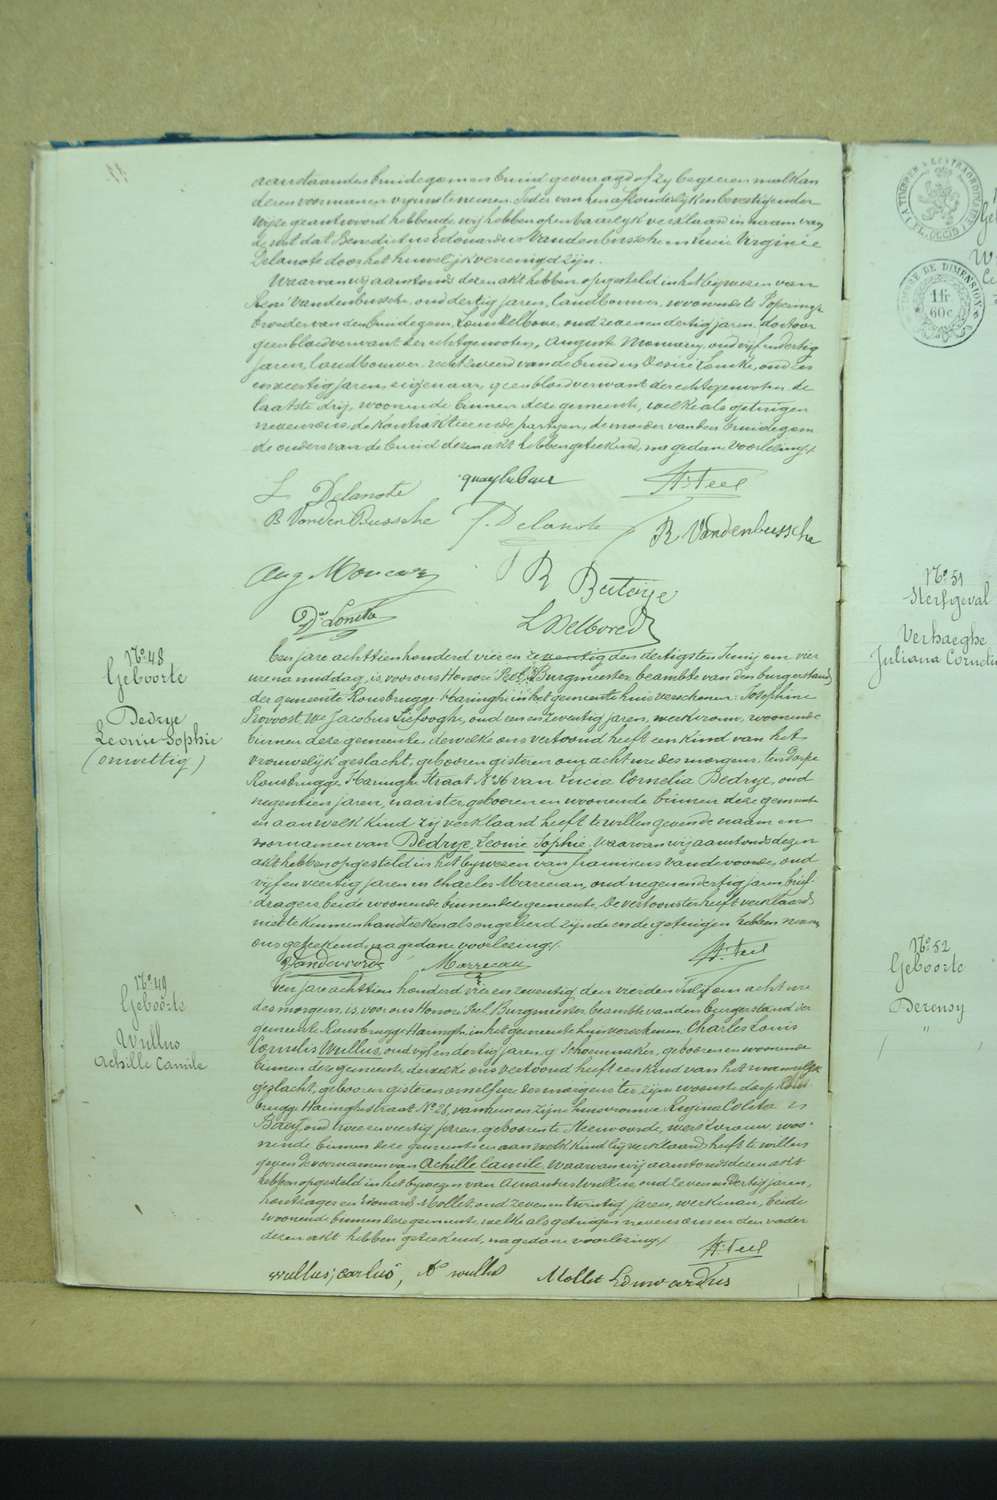 aenstaanden bruidegom en bruid gevraagd of zy begeeren malkan
deren voor man en vrouw te nemen. Ieder van hen afzonderlyk en bevestigender
wyze geantwoord hebbende, wij hebben openbaarlyk verklaard in naam van
de wet dat Benedictus Edouardus Vandenbussche en Lucie Virginie
Delanote door het huwelijk vereenigd zijn.
Waarvan wij aanstonds dezen akt hebben opgesteld in het bywezen van
Henri Vandenbussche, oud dertig jaren, landbouwer, woonende te Poperinge
broeder van den bruidegom, oud zeven en dertig jaren, doctoor
geen bloedverwant der echtgenooten, Auguste Monsarez, oud vijf en dertig
jaren, landbouwer, van de bruid en Desiré Loncke, oud zes
en veertig jaren, eigenaar, geen bloedverwant der echtgenooten, de
laatste drij, woonende binnen deze gemeente, welke als getuigen
nevens ons, de kontrakteerende partyen, de moeder van den bruidegom
de ouders van de bruid dezen akt hebben geteekend, na gedane voorlezing./.
L Delanote
H. Feel
B VandenBussche
F. Delanote
R Vandenbussche
Aug Moncarez
R Butaye
Ds Loncke
L Delboredt
N° 48
Geboorte
Dedrye
Leonie Sophie
(onwettig)
Ten jare achttien honderd vier en zeventig den dertigsten Junij om vier
ure na middag, is voor ons Honoré Feel, Burgmeester beambte van den burgerstand
der gemeente Rousbrugge Haringhe in het gemeentehuis verschenen: Josephine
Provoost we Jacobus Liefooghe, oud een en zeventig jaren, werkvrouw, woonende
binnen deze gemeente, dewelke ons vertoond heeft een kind van het
vrouwelyk geslacht, geboren gisteren om acht ure des morgens, ten dorpe
Rousbrugge Haringhe straat N° 36 van Lucia Cornelia Dedrye, oud
negentien jaren, naaister, geboren en woonende binnen deze gemeente
en aan welk kind zij verklaard heeft te willen geven de naam en
voornamen van Dedrye, Leonie Sophie, waarvan wij aanstonds dezen
akt hebben opgesteld in het bywezen van Franciscus Vandevoorde, oud
vijf en veertig jaren en Charles Marreeau, oud negen en dertig jaren brief-
dragers beide woonende binnen deze gemeente. De vertoonster heeft verklaard
niet te kunnen handteekenen als ongeleerd zijnde en de getuigen hebben nevens
ons geteekend, na gedane voorlezing./.
Vandevoorde
Marreeau
H. Feel
N° 49
Geboorte
Wullus
Achille Camile
Ten jare achttien honderd vier en zeventig den vierden Julij om acht ure
des morgens, is voor ons Honoré Feel Burgmeester beambte van den burgerstand der
gemeente Rousbrugge Haringhe in het gemeentehuis verschenen: Charles Louis
Cornelis Wullus, oud vijf en dertig jaren, Schoenmaker, geboren en woonende
binnen deze gemeente, dewelke ons vertoond heeft een kind van het mannelyk
geslacht, geboren gisteren om elf ure des morgens ten zijne woonste dorp Rous
brugge Haringhe straat N° 28, van hem en zijne huisvrouwe Regina Colita
Baey oud twee en veertig jaren, geboren te Steenvoorde, werkvrouw, woo-
nende binnen deze gemeente en aan welk kind hij verklaard heeft te willen
geven de voornamen van Achille Camile, waarvan wij aanstonds dezen akt
hebben opgesteld in het bywezen van Amandus Wullus, oud zeven en dertig jaren,
en Edouard Mollet, oud zeven en twintig jaren, werkman, beide
woonende binnen deze gemeente, welke als getuigen nevens ons en den vader
dezen akt hebben geteekend, na gedane voorlezing./.
H. Feel
Wullus, carlus, As wullus
Mollet Edmo ardus
1 fr
60 c
N° 51
Sterfgeval
Verhaeghe
Juliana Corneli
N° 52
Geboorte
Dezensy
"